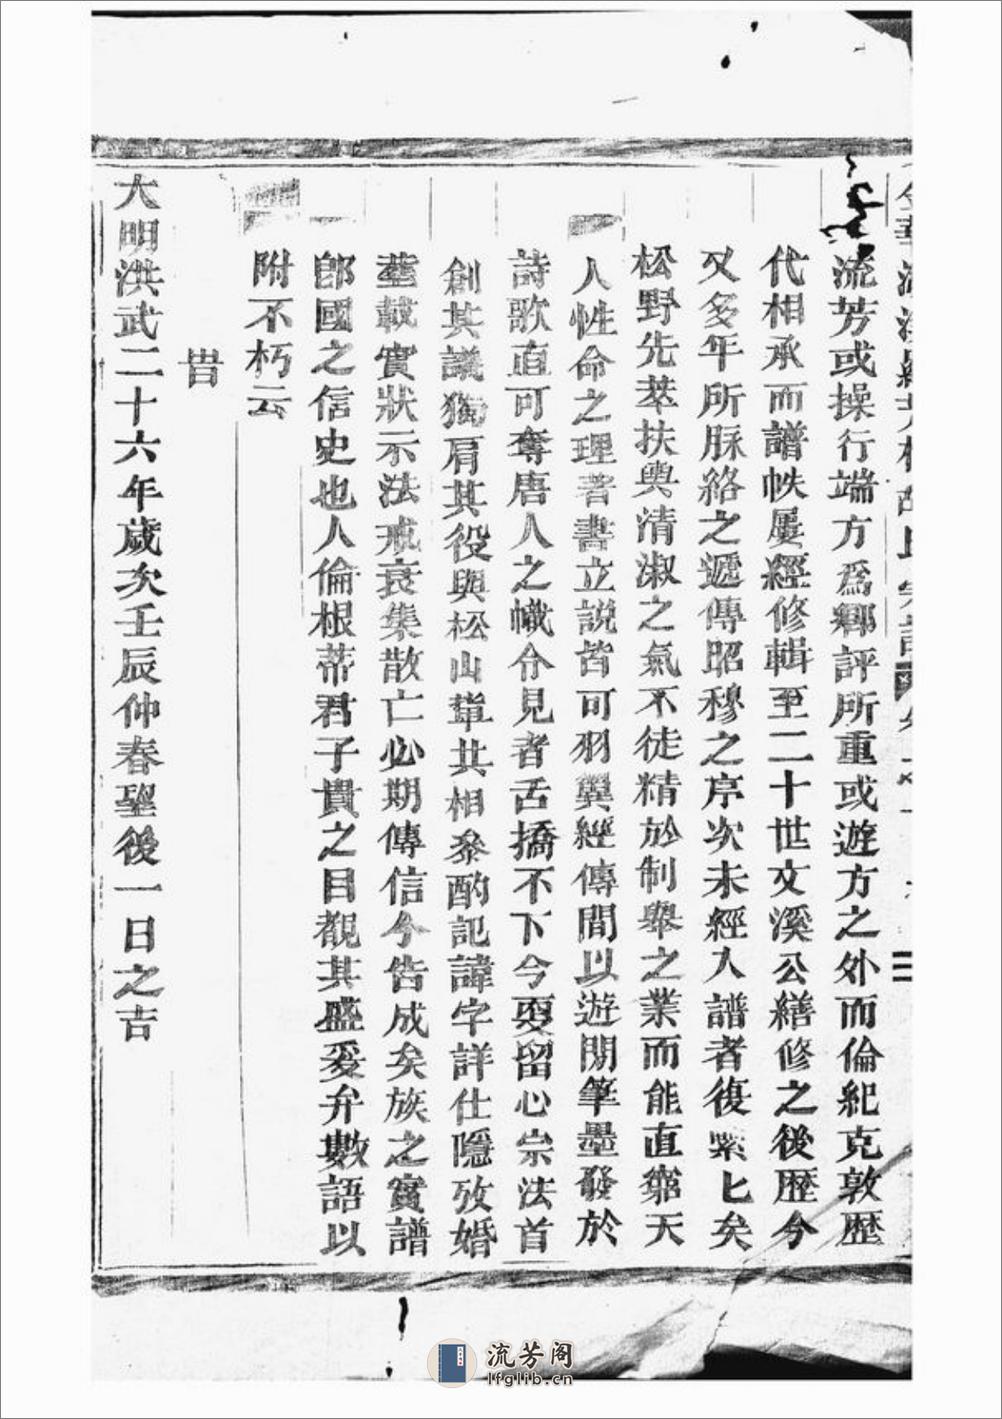 流芳或操行端方爲鄉評所重或遊方之外而倫紀克敦歴
代相承而譜帙屢經修輯至二十世文溪公繕修之後歴今
又多年所脉絡之遞傳昭穆之序次未經入譜者復累匕矣
松野先萃扶輿清淑之氣不徒精於制舉之業而能直窮天
人性命之理著書立説皆可羽翼經傳間以遊閒筆墨發於
詩歌直可奪唐人之幟令見者舌撟不下今更留心宗法首
創其議獨肩其役與松山輩共相叅酌記諱字詳仕隱攷婚
塟載實狀示法戒裒集散亡必期傳信今告成矣族之實譜
卽國之信史也人倫根蒂君子貴之目覩其盛爰弁數語以
附不朽云
旹
大明洪武二十六年歲次壬辰仲春朢後一日之吉
流芳阁
lfglib.cn